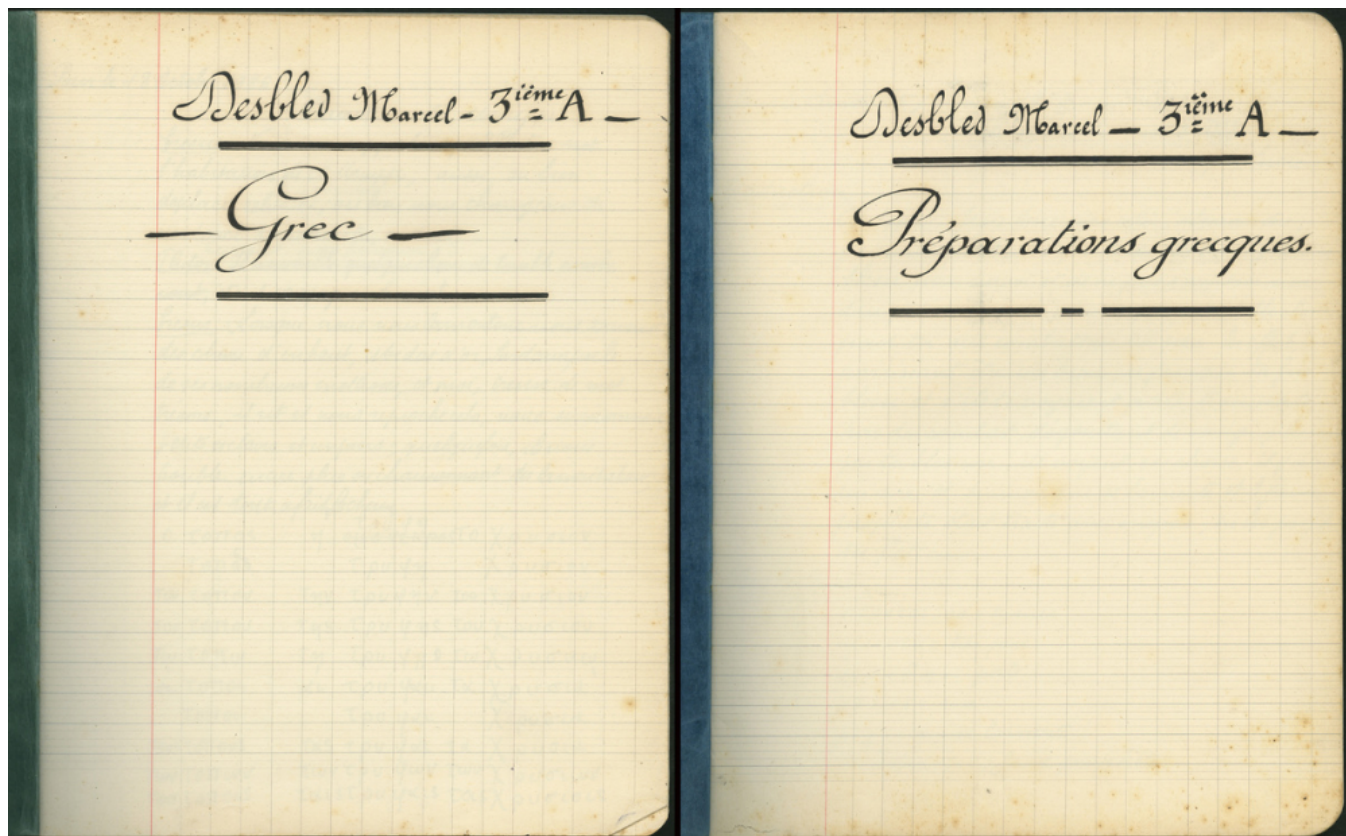 Desbled Marcel - 3ième A -
- Grec -
Desbled Marcel - 3ième A -
Préparations grecques.